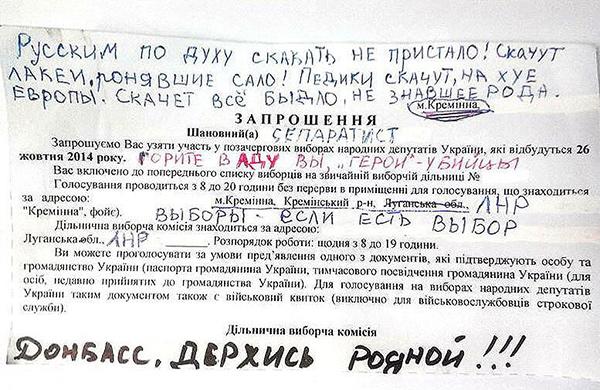 Русским по духу скакать не пристало! Скачут
лакеи, ронявшие сало! Педики скачут, на хуе
Европы. Скачет всё быдло, не знавшее рода.
м.Кремінна,
ЗАПРОШЕННЯ
Шановний(а) СЕПАРАТИСТ
Запрошуємо Вас узяти участь у позачергових виборах народних депутатів України, які відбудуться 26
жовтня 2014 року. ГОРИТЕ В АДУ ВЫ, "ГЕРОИ"-УБИЙЦЫ
Вас включено до попереднього списку виборців на звичайній виборчій дільниці №
Голосування проводиться з 8 до 20 години без перерви в приміщенні для голосування, що знаходиться
за адресою: м.Кремінна, Кремінський р-н, Луганська обл., ЛНР
"Кремінна", фойє). ВЫБОРЫ - ЕСЛИ ЕСТЬ ВЫБОР
Дільнична виборча комісія знаходиться за адресою:
Луганська обл., ЛНР. Розпорядок роботи: щодня з 8 до 19 години.
Ви можете проголосувати за умови пред'явлення одного з документів, які підтверджують особу та
громадянство України (паспорта громадянина України, тимчасового посвідчення громадянина України (для
осіб, недавно прийнятих до громадянства України). Для голосування на виборах народних депутатів
України таким документом також є військовий квиток (виключно для військовослужбовців строкової
служби).
Дільнична виборча комісія
ДОНБАСС, ДЕРЖИСЬ РОДНОЙ!!!